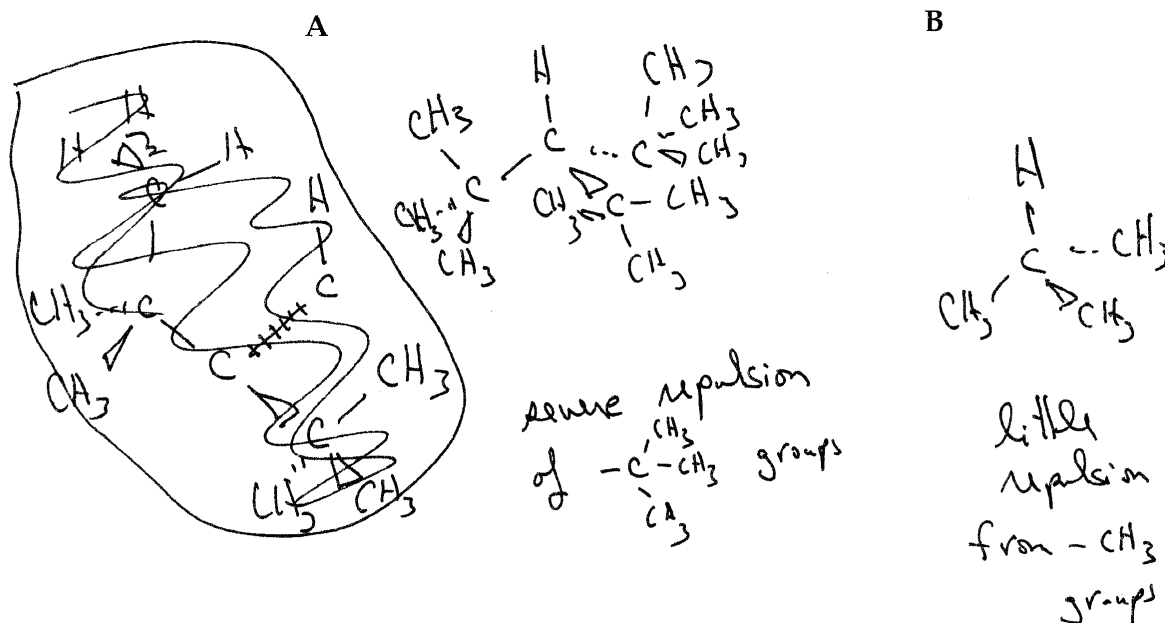 A
B
H
H
H
C
CH3
C
CH3
H
C
C
C
CH3
CH3
CH3
H
C
CH3
C
CH3
CH3
C
CH3
CH3
CH3
C
CH3
CH3
CH3
H
C
CH3
CH3
CH3
severe repulsion
of -C-CH3 groups
CH3
CH3
little
repulsion
from -CH3
groups